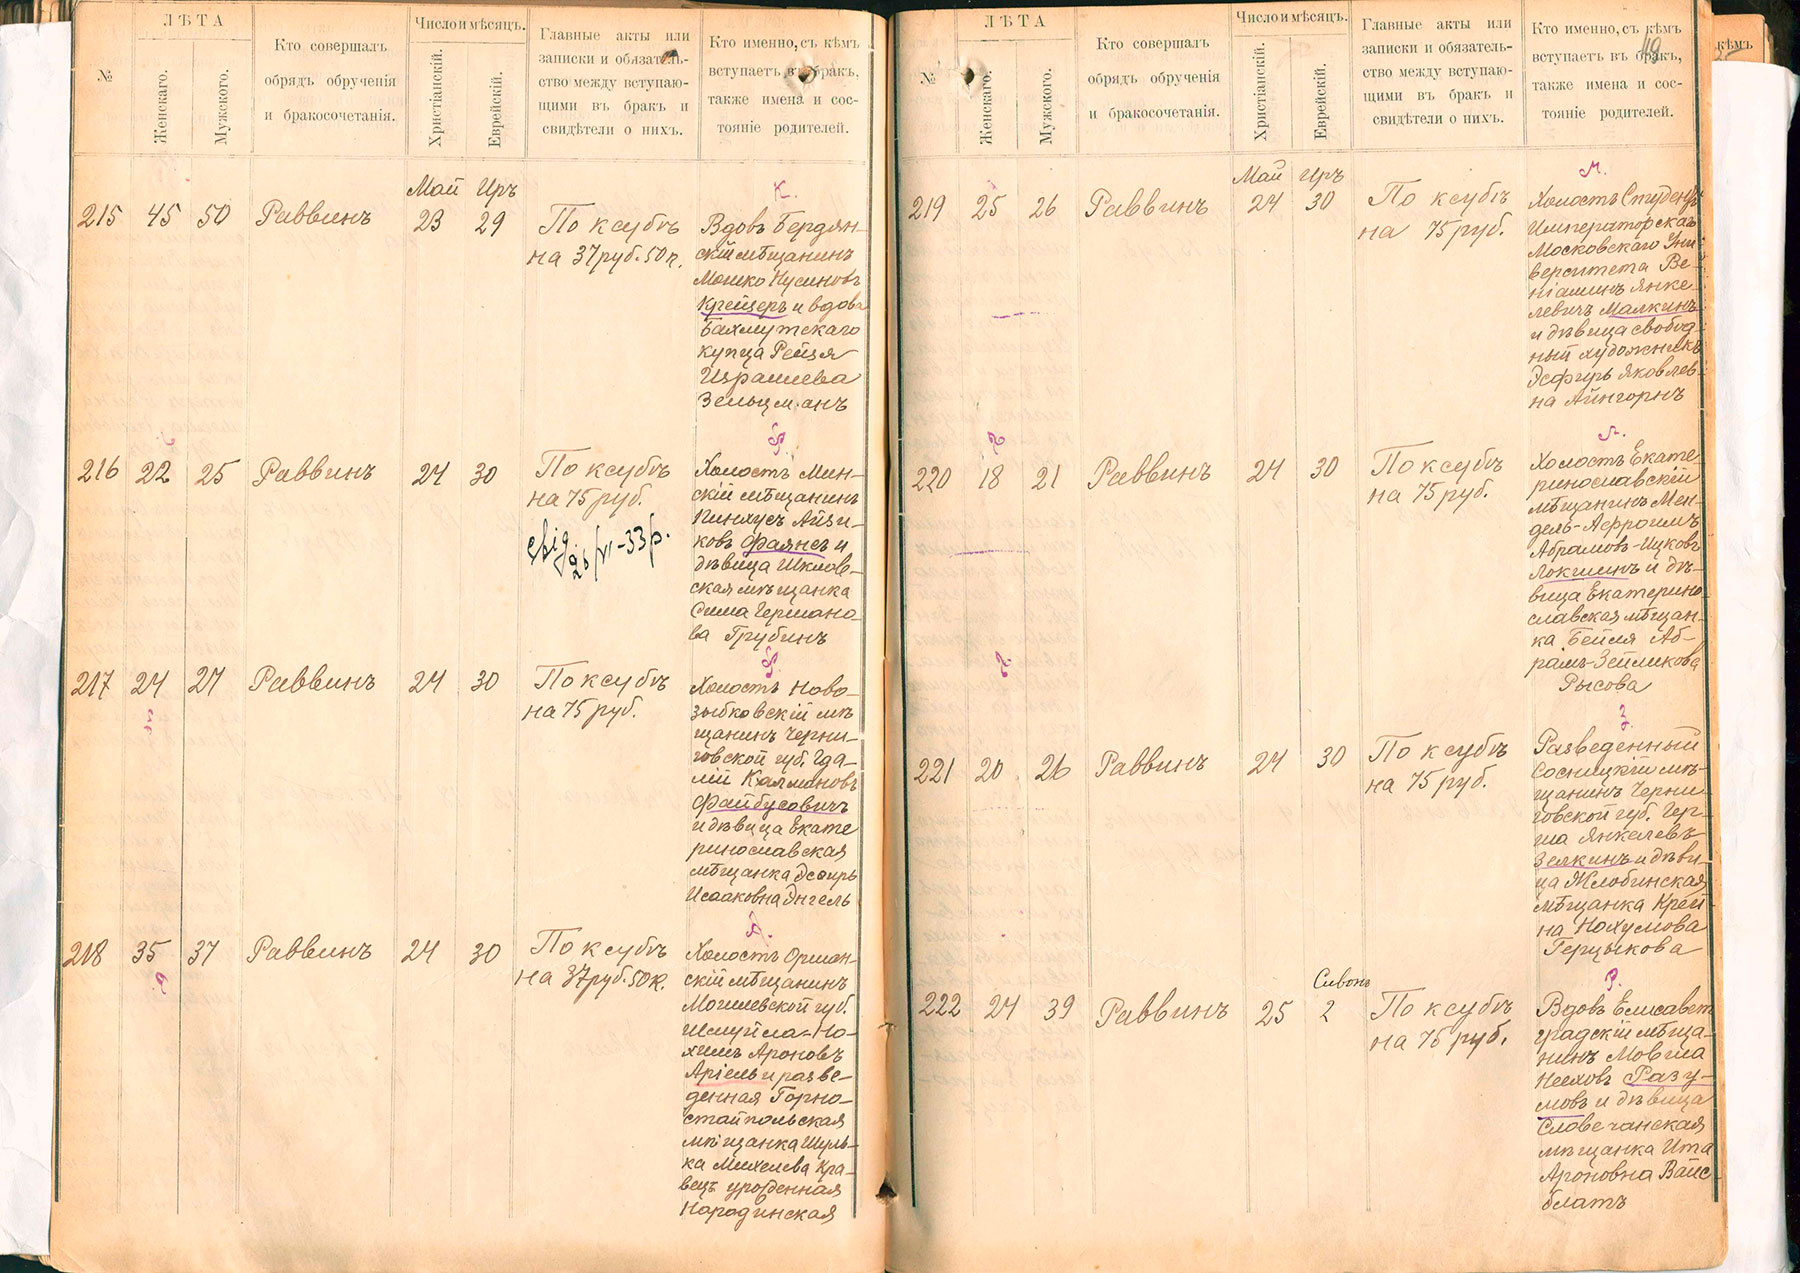 №
ЛѢТА
Женскаго.
Мужского.
Кто совершалъ
обрядъ обрученія
и бракосочетанія.
Число и мѣсяцъ.
Христіанскій.
Еврейскій.
Главные акты или
записки и обязатель-
ство между вступаю-
щими въ бракъ и
свидѣтели о нихъ.
Кто именно, съ кѣмъ
вступаетъ въ бракъ,
также имена и сос-
тояніе родителей.
Май Иръ
К.
215 45 50 Раввинъ 23 29
По ксубѣ
на 37 руб. 50 к.
Вдовъ Бердян-
скій мѣщанинъ
Мошко Нусиновъ
Крейцеръ и вдова
Бахмутскаго
купца Рейзя
Израилева
Зельцманъ
Ф.
216 22 25 Раввинъ 24 30
По ксубѣ
на 75 руб.
26/VI-33 р.
Холостъ Мин-
скій мѣщанинъ
Пинхусъ Айзи-
ковъ Фаянсъ и
дѣвица Шклов-
ская мѣщанка
Сима Германо-
ва Грубинъ
Ф.
217 24 27 Раввинъ 24 30
По ксубѣ
на 75 руб.
Холостъ Ново-
зыбковскій мѣ
щанинъ Черни-
говской губ. Гда-
лій Калмановъ
Файбусовичъ
и дѣвица Екате
ринославская
мѣщанка Эсѳирь
Исааковна Энгель
А.
218 35 37 Раввинъ 24 30
По ксубѣ
на 37 руб. 50 к.
Холостъ Оршан-
скій мѣщанинъ
Могилевской губ.
Шмуйла-Но-
химъ Ароновъ
Аріель и разве-
денная Горно-
стайпольская
мѣщанка Шуль-
ка Михелева Кра-
вецъ урожденная
Народинская
49
№
ЛѢТА
Женскаго.
Мужского.
Кто совершалъ
обрядъ обрученія
и бракосочетанія.
Число и мѣсяцъ.
Христіанскій.
Еврейскій.
Главные акты или
записки и обязатель-
ство между вступаю-
щими въ бракъ и
свидѣтели о нихъ.
Кто именно, съ кѣмъ
вступаетъ въ бракъ,
также имена и сос-
тояніе родителей.
кѣмъ
Май Иръ
М.
219 25 26 Раввинъ 24 30
По ксубѣ
на 75 руб.
Холостъ Студентъ
Императорскаго
Московскаго Уни
верситета Ве-
ніаминъ Янке-
левичъ Малкинъ
и дѣвица свобод-
ный художникъ
Эсфирь Яковлев-
на Айнгорнъ
Л.
220 18 21 Раввинъ 24 30
По ксубѣ
на 75 руб.
Холостъ Екате-
ринославскій
мѣщанинъ Мен-
дель-Афроимъ
Абрамовъ-Ицковъ
Локшинъ и дѣ-
вица Екатерино
славская мѣщан-
ка Бейля Аб-
рамъ-Зейликова
Рысова
З.
221 20 26 Раввинъ 24 30
По ксубѣ
на 75 руб.
Разведенный
Сосницкій мѣ-
щанинъ Черни-
говской губ. Гер-
ша Янкелевъ
Зелкинъ и дѣви-
ца Жлобинская
мѣщанка Крей-
на Нохумова
Герцыкова
Сивонъ
Р.
222 24 39 Раввинъ 25 2
По ксубѣ
на 75 руб.
Вдовъ Елисавет
градскій мѣща-
нинъ Мовша
Нееховъ Разу-
мовъ и дѣвица
Словечанская
мѣщанка Ита
Ароновна Вайс-
блатъ